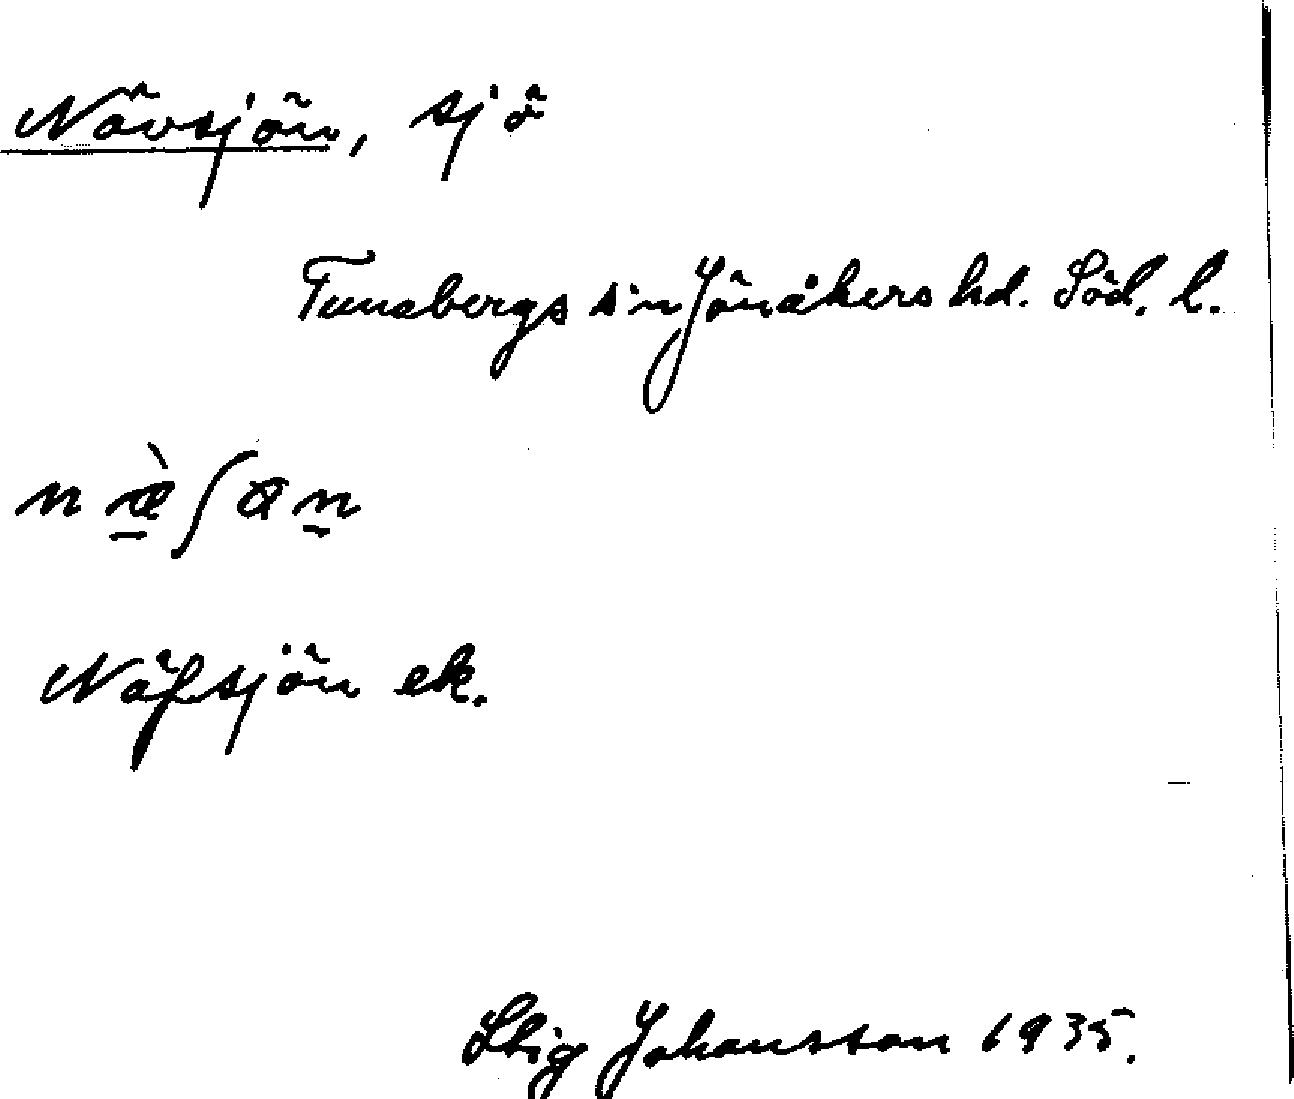 Nävsjön, sjö
Tunabergs sn Jönåkers hd. Söd. l.
Näfsjön ek.
Stig Johansson 1935.